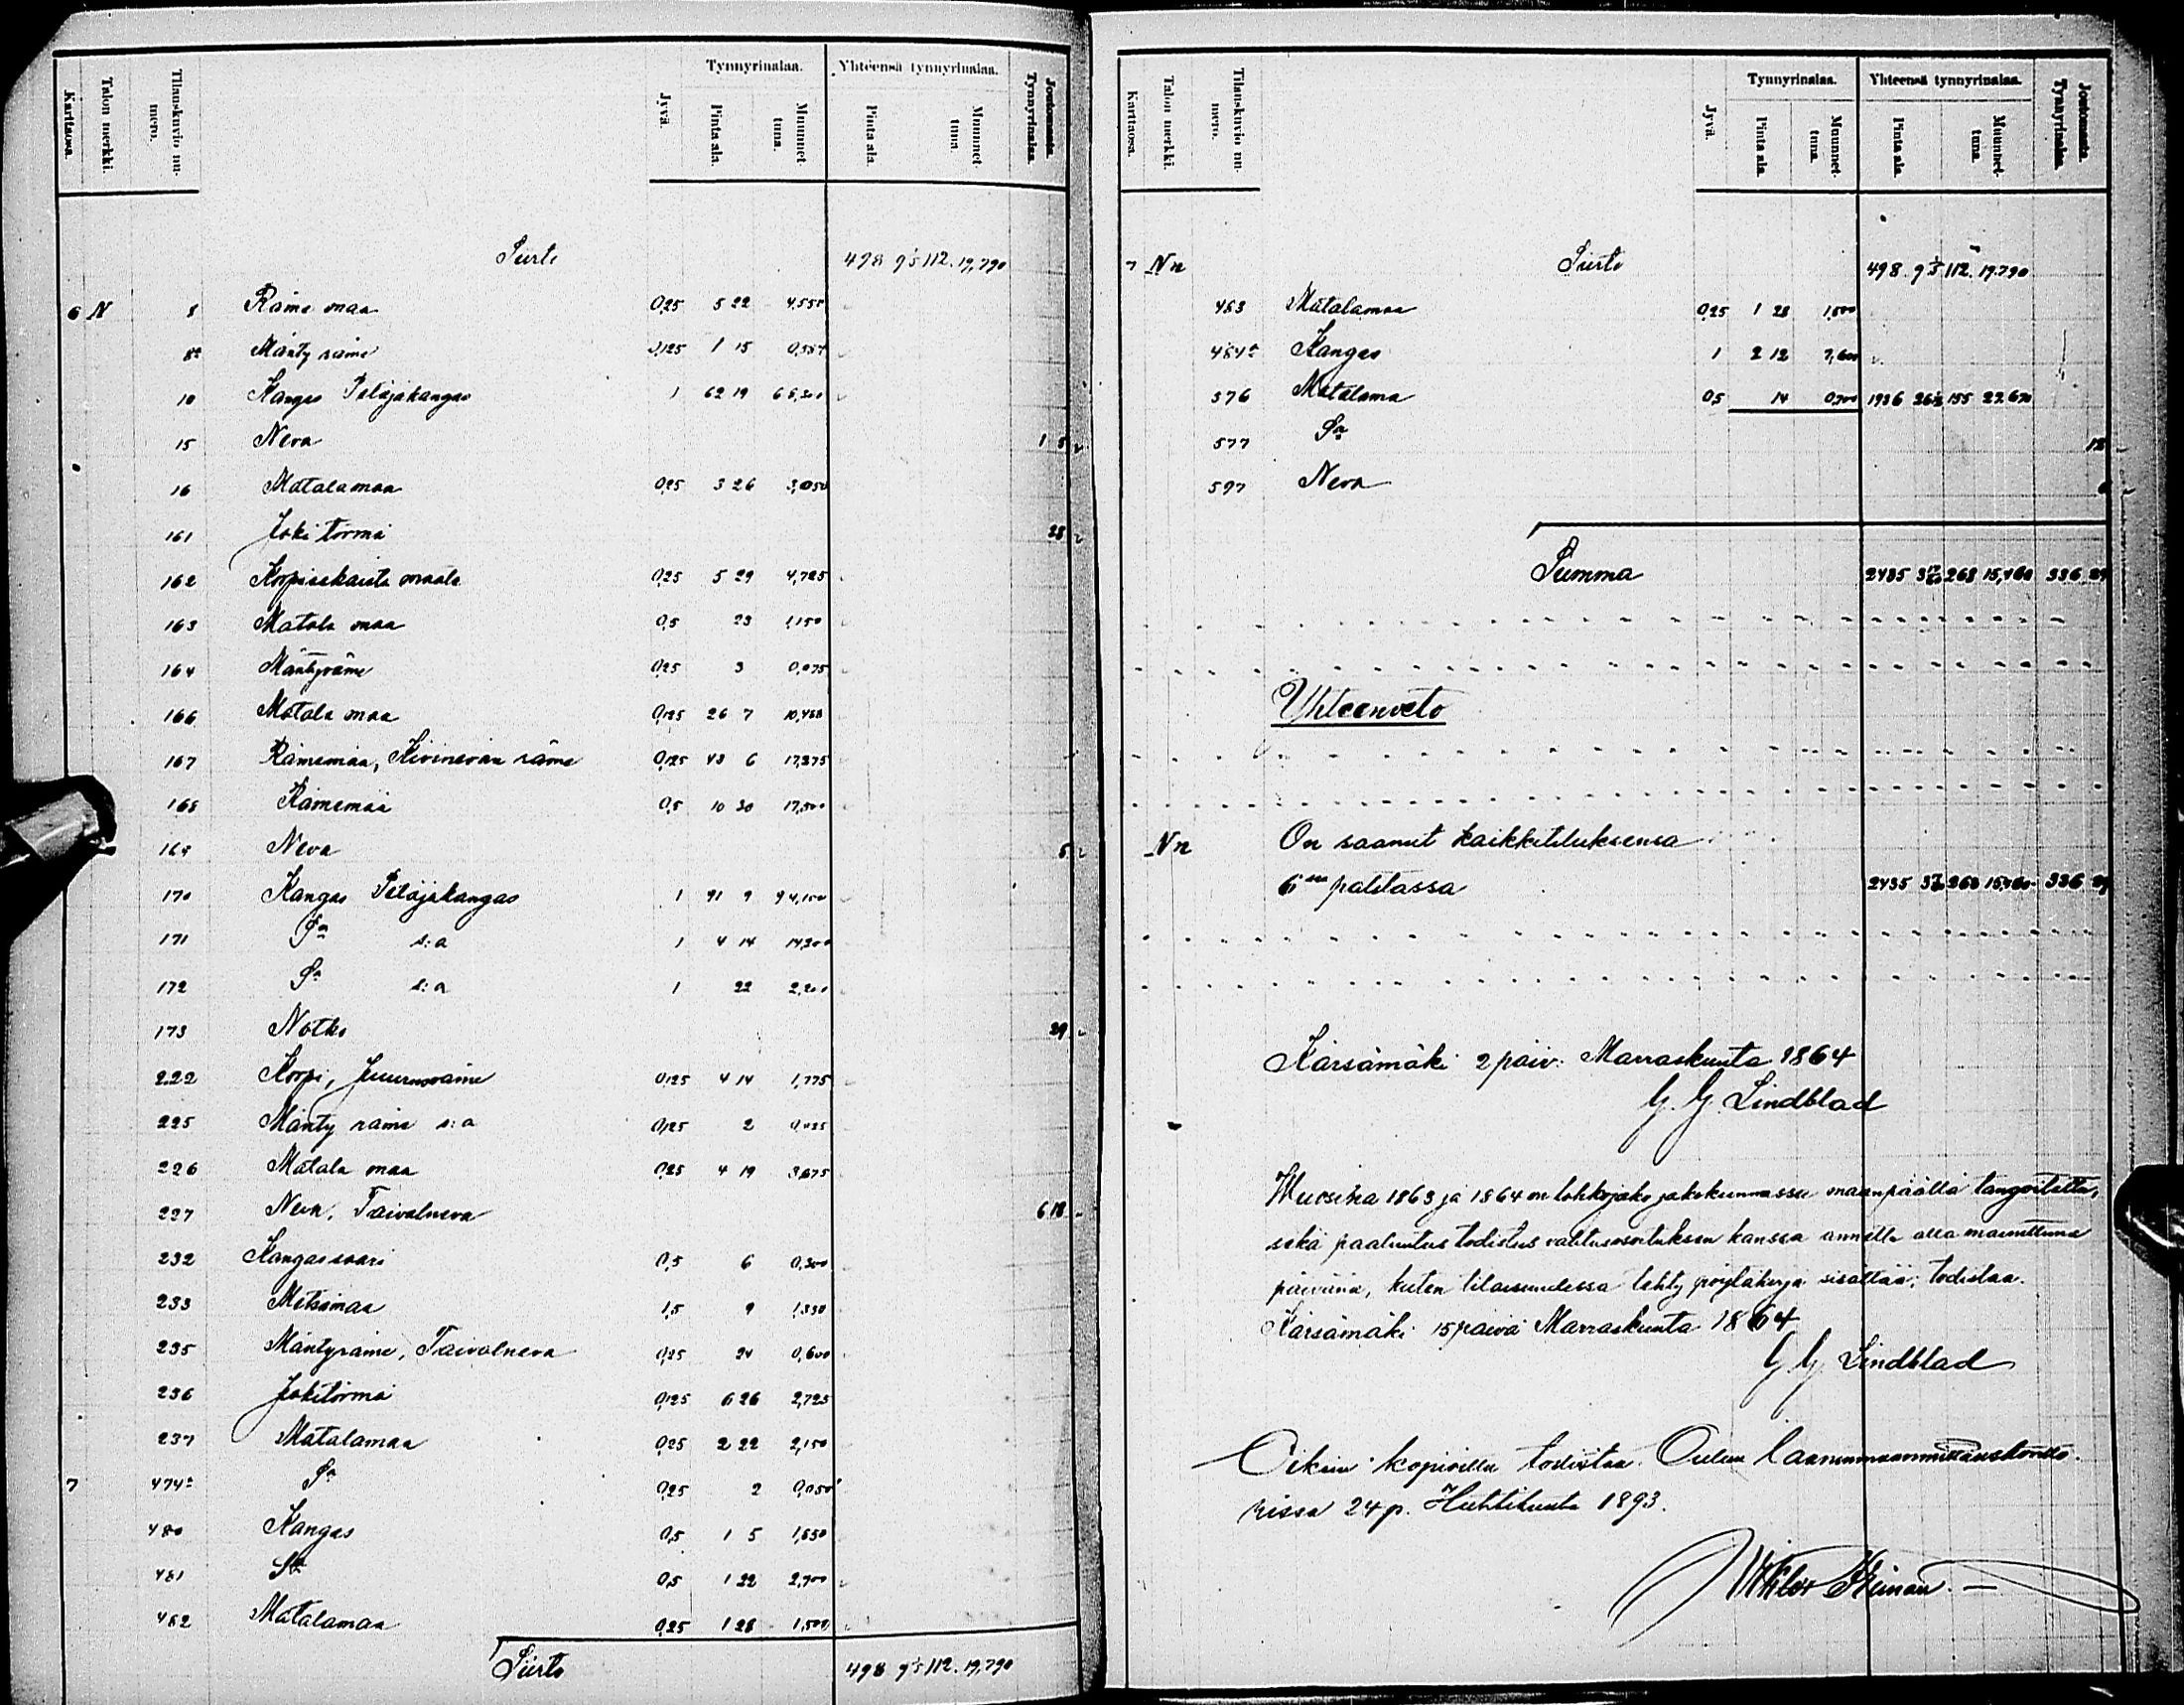 Karttaosa. Talon merkki. Tiluskuvio numero. Jyvä. Tynnyrinalaa. Pinta ala. Muunnettuna. Yhteensä tynnyrinalaa. Pinta ala. Muunnettuna. Joutomaata. Tynnyrinalaa.
Siirto 498 9 112. 19,790
6 N 8 Räme maa 0,25 5 22 4,550
8a Mänty räme 0,125 1 15 0,587
10 Kangas Petäjäkangas 1 62 19 65,300
15 Neva 1 5
16 Matalamaa 0,25 3 26 3,050
161 Joki törmä 28
162 Korpisekaista maata 0,25 5 29 4,725
163 Matala maa 0,5 23 1,150
164 Mäntyräme 0,25 3 0,075
166 Matala maa 0,125 26 7 10,488
167 Rämemaa, Kivinevan räme 0,125 43 6 17,275
168 Rämemaa 0,5 10 30 17,500
169 Neva 5
170 Kangas Petäjäkangas 1 91 9 94,100
171 Sa s:a 1 4 14 14,200
172 Sa s:a 1 22 2,200
173 Notko 29
222 Korpi, 0,125 4 14 1,775
225 Mänty räme s:a 0,125 2 0,025
226 Matala maa 0,25 4 19 3,675
227 Neva, Taivalneva 6 18
232 Kangassaari 0,5 6 0,300
233 Metsämaa 1,5 9 1,350
235 Mäntyräme, Taivalneva 0,25 24 0,600
236 Jokitörmä 0,125 6 26 2,725
237 Matalamaa 0,25 2 22 2,150
7 474a Sa 0,25 2 0,050
480 Kangas 0,5 1 5 1,850
481 Sa 0,5 1 22 2,700
482 Matalamaa 0,25 1 28 1,500
Siirto 498 9 112. 19,790
Karttaosa. Talon merkki. Tiluskuvio numero. Jyvä. Tynnyrinalaa. Pinta ala. Muunnettuna. Yhteensä tynnyrinalaa. Pinta ala. Muunnettuna. Joutomaata. Tynnyrinalaa.
7 Nn Siirto 498. 9 112. 19,790
483 Matalamaa 0,25 1 28 1,500
484a Kangas 1 2 12 7,600
576 Matalamaa 0,5 14 0,700 1936 26½ 155 27,670
577 Sa 18
597 Neva 6
Summa 2435 268 15,460 336 29
Yhteenveto
Nn On saanut kaikki tiluksensa
6 palstassa 2435 268 15,460 336 29
Kärsämäki 2 päiv: Marraskuuta 1864
G. G. Lindblad
Wuosina 1863 ja 1864 on lohkojako jakokunnassa maanpäällä tangoitettu,
sekä paalutus todistus valitusosoituksen kanssa annettu alla mainittuna
päivänä, kuten tilaisuudessa tehty pöytäkirja sisältää; todistaa.
Kärsämäki 15 päivä Marraskuuta 1864
G. G. Lindblad
Oikein kopioitu todistaa. Oulun läaninmaanmittauskontto-
rissa 24 p. Huhtikuuta 1893.
Wiktor